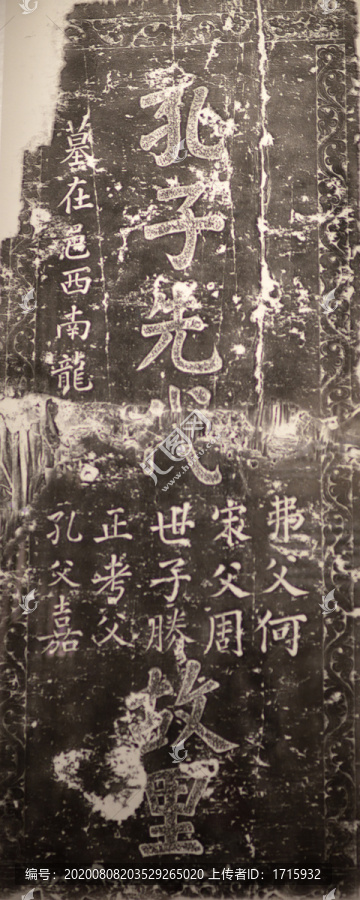 孔子先代故里
弗父何
宋父周
世子勝
正考父
孔父嘉
墓在邑西南龍
编号：20200808203529265020 上传者ID：1715932